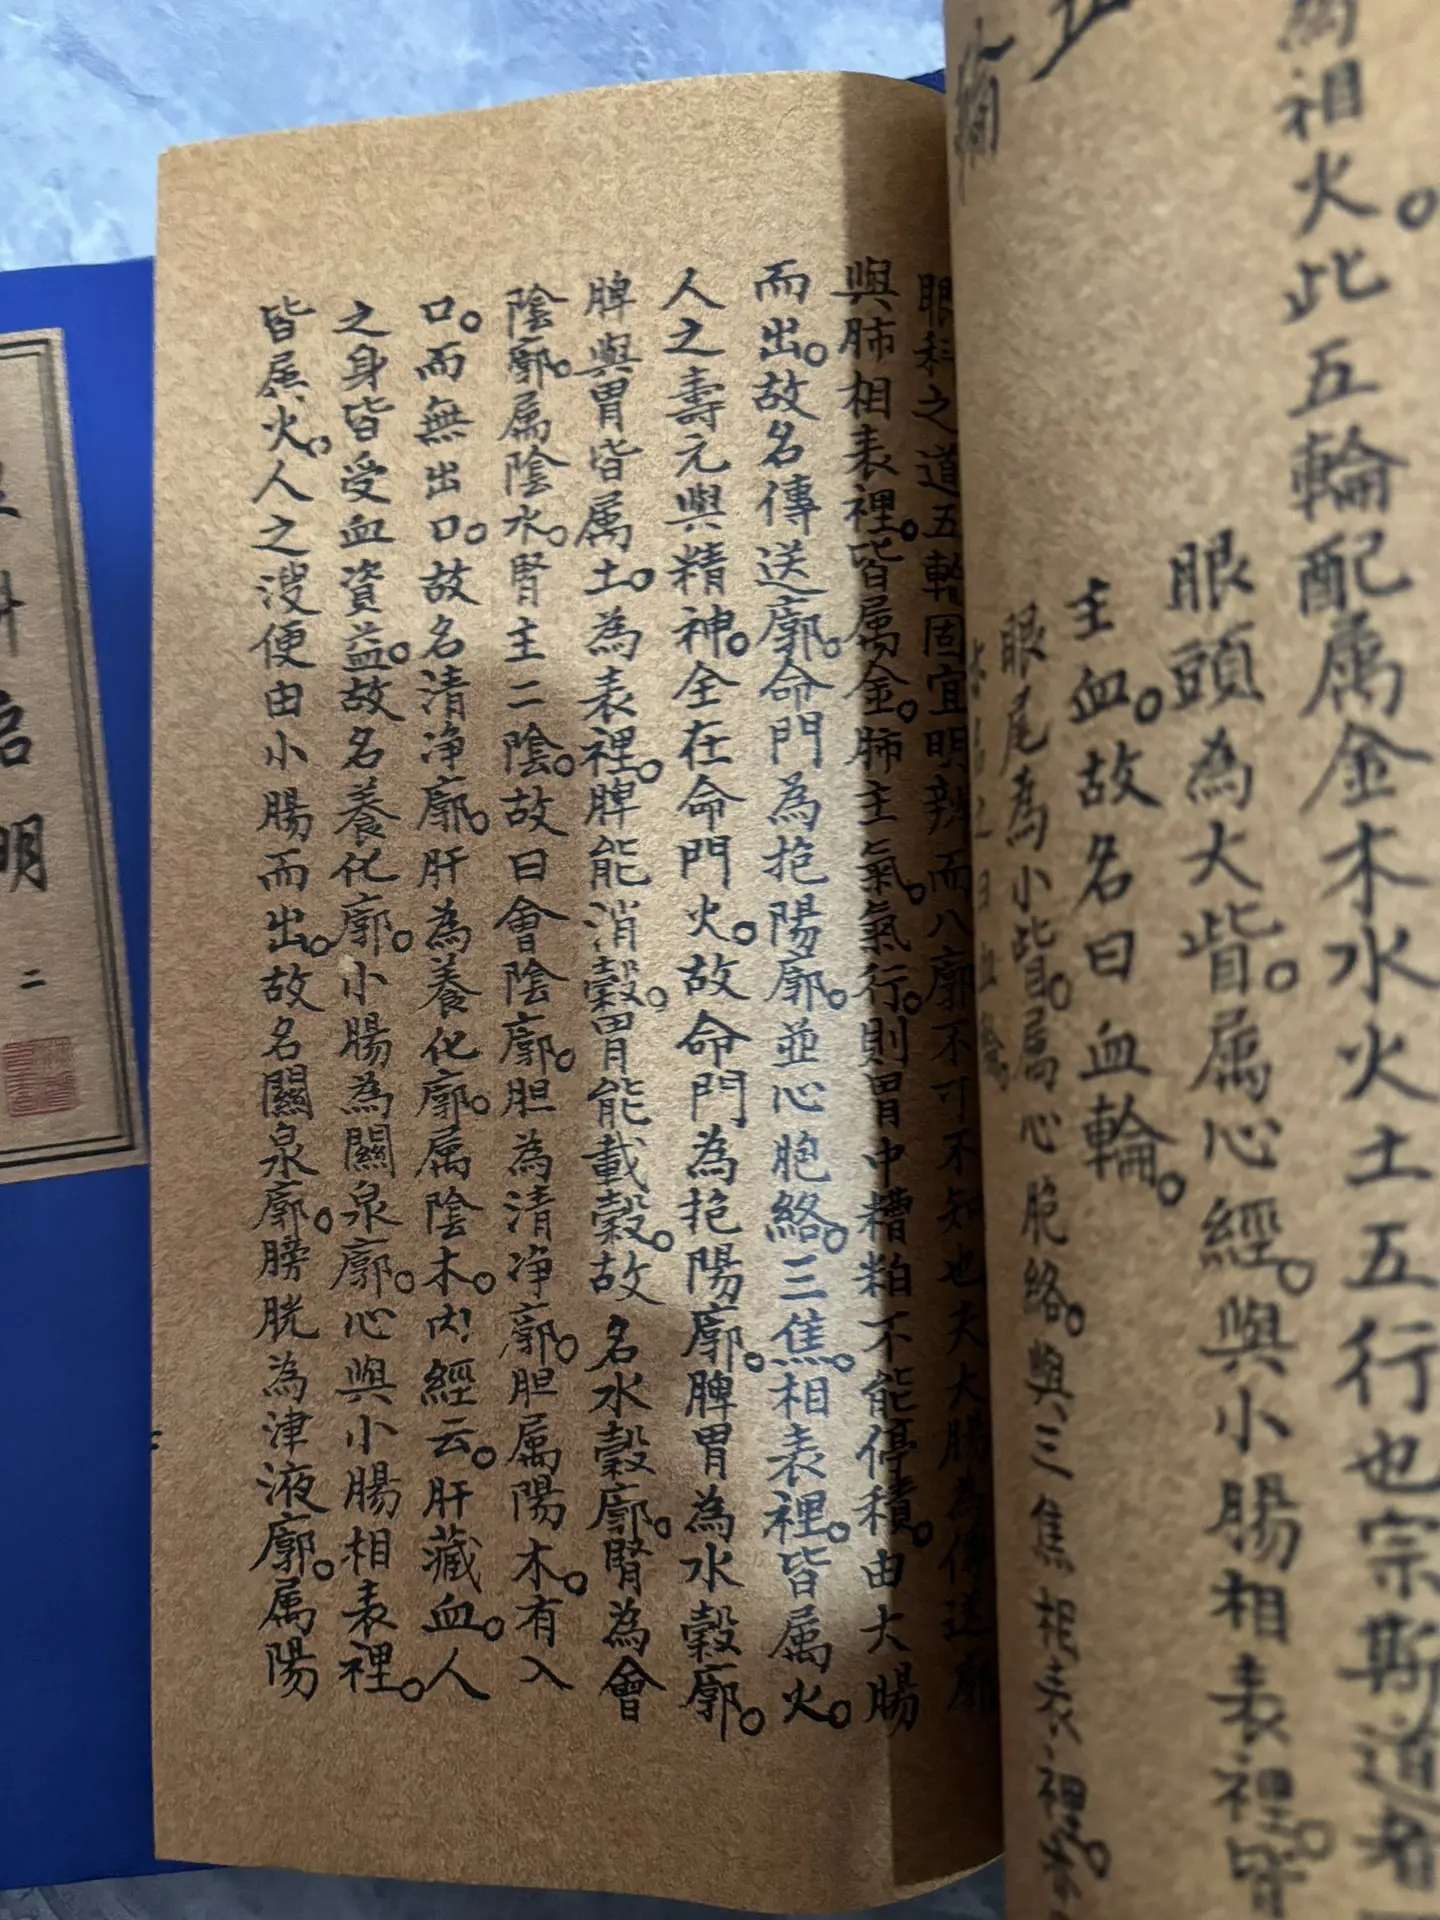 相火。此五輪配属金木水火土五行也宗斯道者
眼頭為大眥。属心經。與小腸相表裡。皆
主血。故名曰血輪。
眼尾為小眥。属心胞絡。與三焦相表裡。
名之曰血輪
輪
眼科之道五輪固宜明辨而八廓不可不知也夫大腸為傳送廓
與肺相表裡。皆属金。肺主氣。氣行。則胃中糟粕不能停積。由大腸
而出。故名傳送廓。命門為抱陽廓。並心胞絡。三焦。相表裡。皆属火。
人之壽元與精神。全在命門火。故命門為抱陽廓。脾胃為水穀廓。
脾與胃皆属土。為表裡。脾能消穀。胃能載穀。故名水穀廓。腎為會
陰廓。属陰水。腎主二陰。故曰會陰廓。胆為清净廓。胆属陽木。有入
口。而無出口。故名清净廓。肝為養化廓。属陰木。内經云。肝藏血。人
之身皆受血資益。故名養化廓。小腸為關泉廓。心與小腸相表裡。
皆属火。人之溲便由小腸而出。故名關泉廓。膀胱為津液廓。属陽
科啓明 二